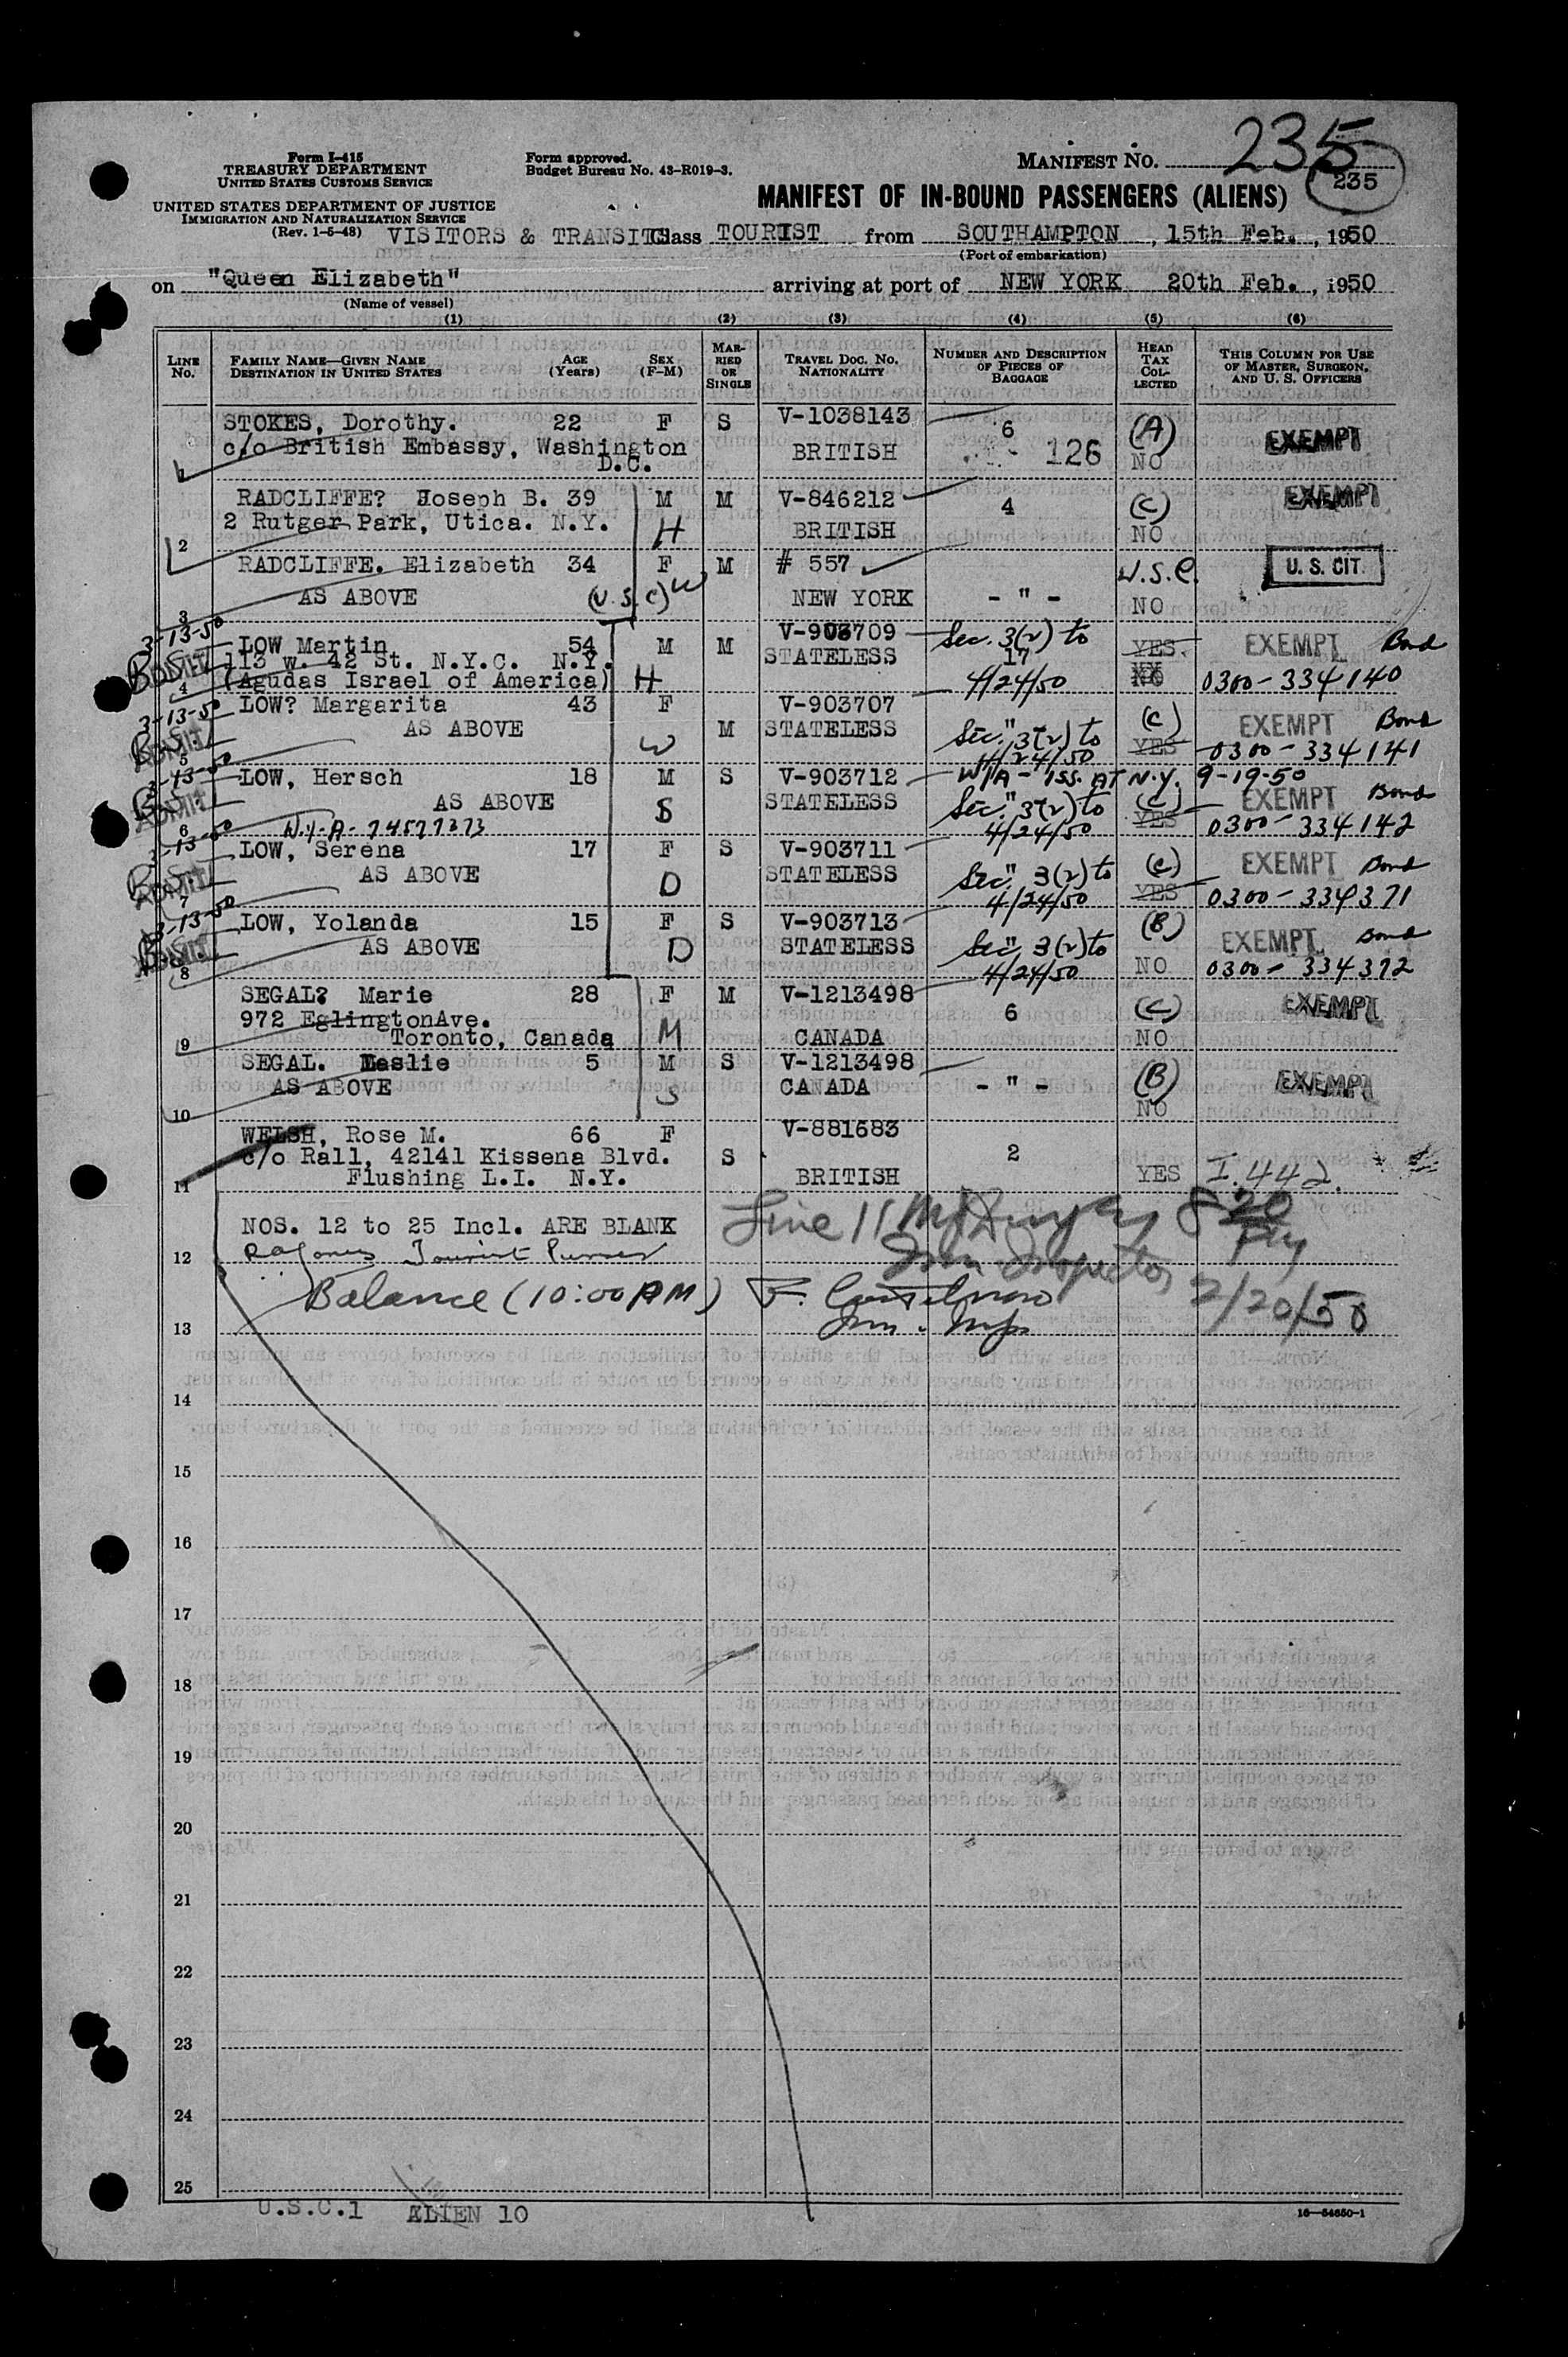 Form I-415
TREASURY DEPARTMENT
UNITED STATES CUSTOMS SERVICE
UNITED STATES DEPARTMENT OF JUSTICE
IMMIGRATION AND NATURALIZATION SERVICE
(Rev. 1-5-48)
Form approved.
Budget Bureau No. 43-R019-3.
MANIFEST NO. 235
235
MANIFEST OF IN-BOUND PASSENGERS (ALIENS)
VISITORS & TRANSITS Class TOURIST from SOUTHAMPTON, 15th Feb., 1950
(Port of embarkation)
on "Queen Elizabeth" arriving at port of NEW YORK 20th Feb., 1950
(Name of vessel)
(1) (2) (3) (4) (5) (6)
LINE No.
FAMILY NAME—GIVEN NAME
DESTINATION IN UNITED STATES
AGE (Years)
SEX (F-M)
MARRIED OR SINGLE
TRAVEL DOC. NO.
NATIONALITY
NUMBER AND DESCRIPTION OF PIECES OF BAGGAGE
HEAD TAX COLLECTED
THIS COLUMN FOR USE OF MASTER, SURGEON, AND U. S. OFFICERS
STOKES, Dorothy. 22 F S V-1038143 6 (A) EXEMPT
c/o British Embassy, Washington BRITISH 126 NO
1 D.C.
RADCLIFFE? Hoseph B. 39 M M V-846212 4 (C) EXEMPT
2 Rutger Park, Utica. N.Y. H BRITISH NO
2
RADCLIFFE. Elizabeth 34 F M # 557 U.S.C. U. S. CIT.
AS ABOVE (U.S.C) W NEW YORK - " - NO
3
3-13-50 LOW Martin 54 M M V-903709 Sec. 3(2) to YES. EXEMPT Bond
ADMIT 113 w. 42 St. N.Y.C. N.Y. STATELESS 17
4 (Agudas Israel of America) H 4/24/50 NO 0300-334140
3-13-50 LOW? Margarita 43 F V-903707 (C) EXEMPT Bond
ADMIT AS ABOVE W M STATELESS " Sec. 3(2) to
5 4/24/50 YES 0300-334141
3-13-50 LOW, Hersch 18 M S V-903712 W/A - ISS. AT N.Y. 9-19-50
ADMIT AS ABOVE S STATELESS " Sec. 3(2) to (C) EXEMPT Bond
6 4/24/50 YES 0300-334142
3-13-50 LOW, Serena 17 F S V-903711 (C) EXEMPT Bond
ADMIT AS ABOVE D STATELESS " Sec. 3(2) to
7 4/24/50 YES 0300-334371
3-13-50 LOW, Yolanda 15 F S V-903713 (B) EXEMPT Bond
AS ABOVE D STATELESS " Sec. 3(2) to
8 4/24/50 NO 0300-334372
SEGAL? Marie 28 F M V-1213498 6 (C) EXEMPT
972 EglingtonAve. M
9 Toronto, Canada CANADA NO
SEGAL. Leslie 5 M S V-1213498 (B) EXEMPT
AS ABOVE S CANADA - " -
10 NO
WELSH, Rose M. 66 F V-881683
c/o Rall, 42141 Kissena Blvd. S 2
11 Flushing L.I. N.Y. BRITISH YES I.442.
NOS. 12 to 25 Incl. ARE BLANK
Line 11
12 Tourist Purser
Imn Inspector
Balance (10:00 PM)
2/20/50
13
14
15
16
17
18
19
20
21
22
23
24
25
U.S.C.1 ALIEN 10
16—54650-1